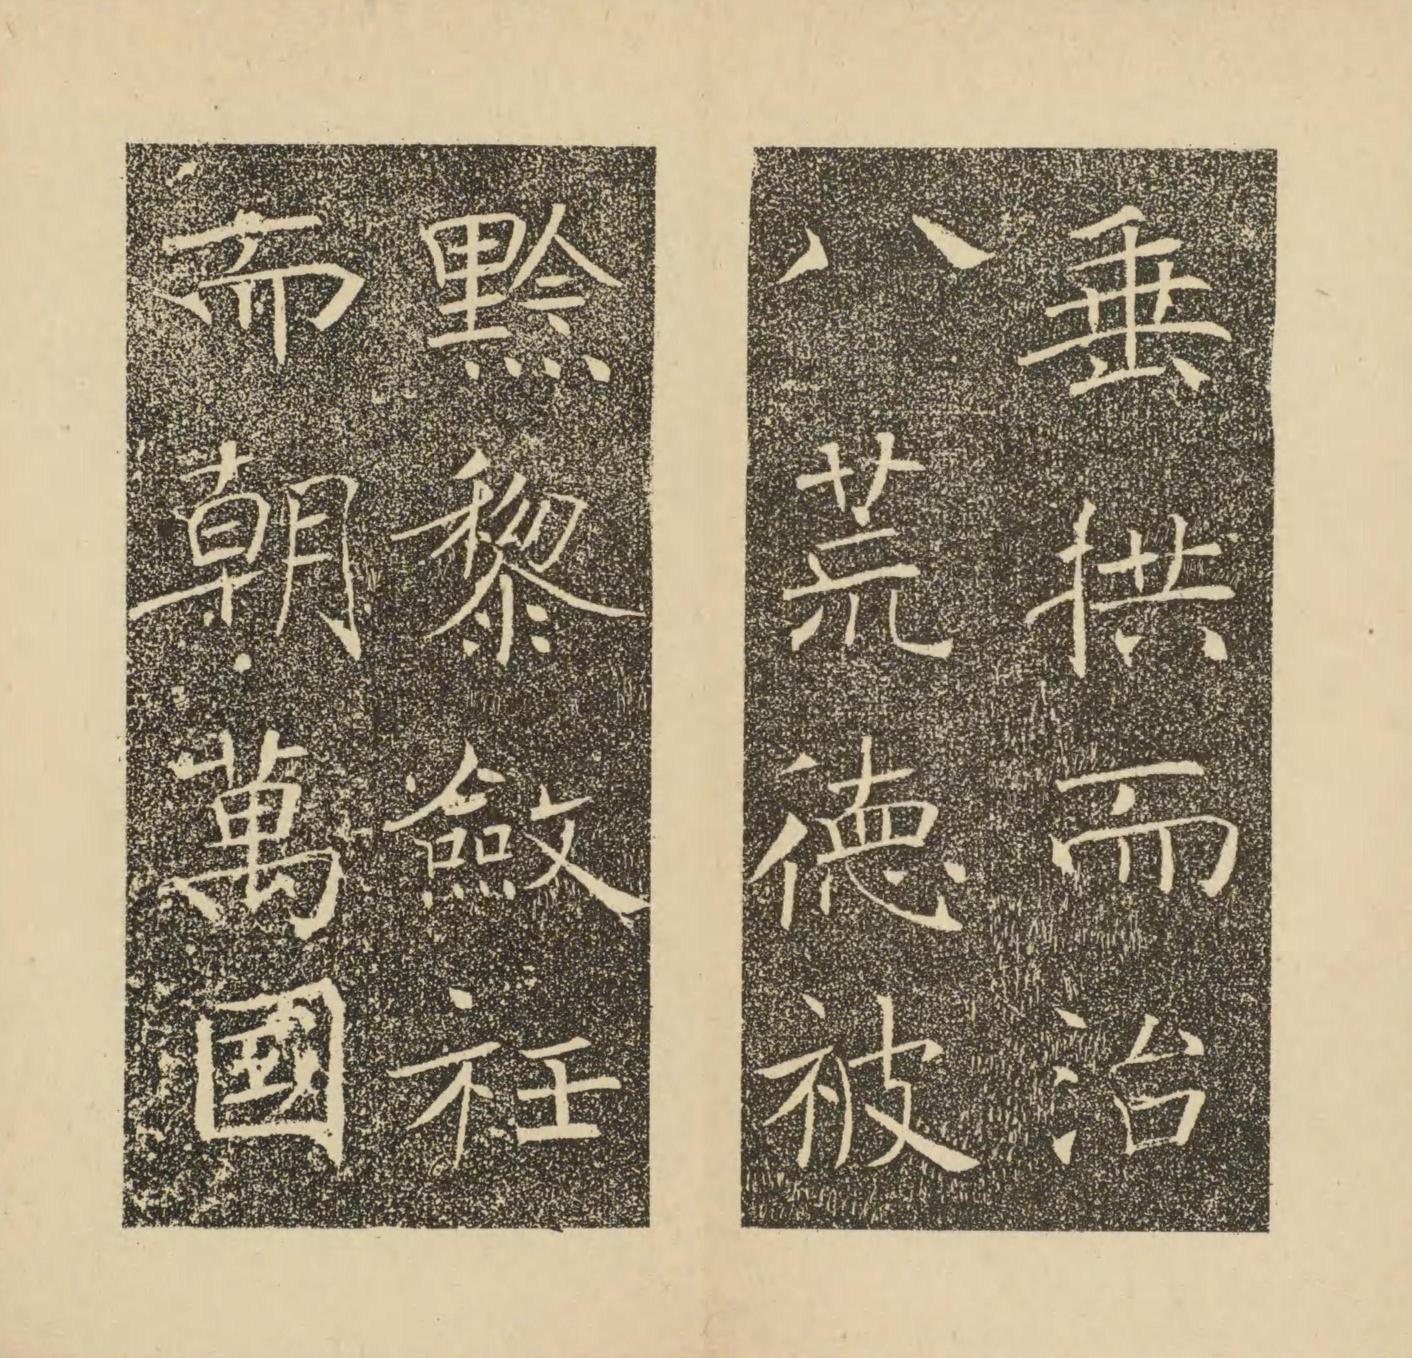 垂拱而治
八荒德被
黔黎斂衽
而朝萬國